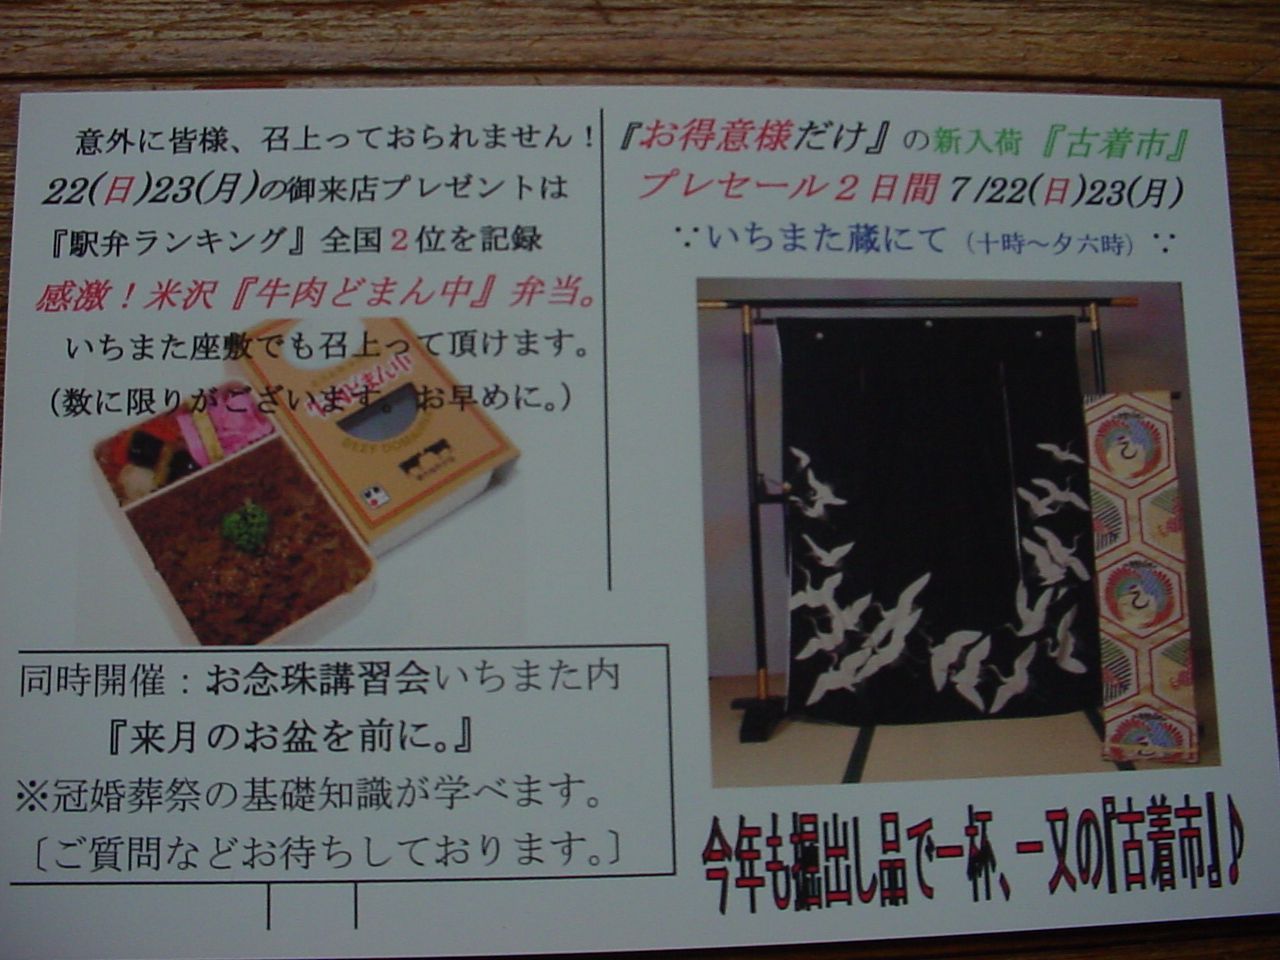 意外に皆様、召上っておられません！
22(日)23(月)の御来店プレゼントは
『駅弁ランキング』全国２位を記録
感激！米沢『牛肉どまん中』弁当。
いちまた座敷でも召上って頂けます。
（数に限りがございます。お早めに。）
同時開催：お念珠講習会いちまた内
『来月のお盆を前に。』
※冠婚葬祭の基礎知識が学べます。
〔ご質問などお待ちしております。〕
『お得意様だけ』の新入荷『古着市』
プレセール２日間７/22(日)23(月)
∵いちまた蔵にて（十時～夕六時）∵
今年も掘出し品で一杯、一又の『古着市』♪